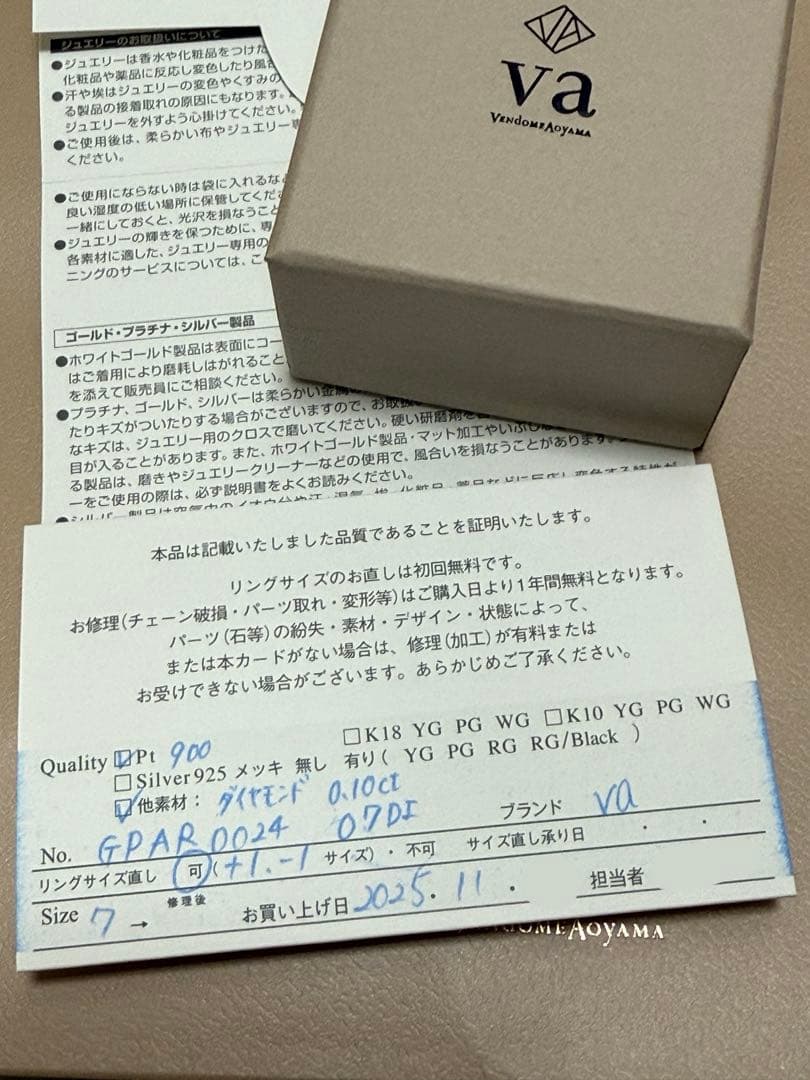 ジュエリーのお取扱いについて
●ジュエリーは香水や化粧品をつけた
化粧品や薬品に反応し変色したり風合
●汗や埃はジュエリーの変色やくすみの
る製品の接着取れの原因にもなります。
ジュエリーを外すよう心掛けてください。
●ご使用後は、柔らかい布やジュエリー専
ください。
●ご使用にならない時は袋に入れるなど
良い湿度の低い場所に保管してくださ
一緒にしておくと、光沢を損なうこと
●ジュエリーの輝きを保つために、専
各素材に適した、ジュエリー専用の
ニングのサービスについては、こ
ゴールド・プラチナ・シルバー製品
●ホワイトゴールド製品は表面にコー
はご着用により磨耗しはがれること
を添えて販売員にご相談ください。
●プラチナ、ゴールド、シルバーは柔らかい金属の
たりキズがついたりする場合がございますので、お取扱
なキズは、ジュエリー用のクロスで磨いてください。硬い研磨剤を
目が入ることがあります。また、ホワイトゴールド製品・マット加工やいぶし
る製品は、磨きやジュエリークリーナーなどの使用で、風合いを損なうことがあります。
ーをご使用の際は、必ず説明書をよくお読みください。
VA
va
VENDOMEAOYAMA
本品は記載いたしました品質であることを証明いたします。
リングサイズのお直しは初回無料です。
お修理(チェーン破損・パーツ取れ・変形等)はご購入日より1年間無料となります。
パーツ(石等)の紛失・素材・デザイン・状態によって、
または本カードがない場合は、修理(加工)が有料または
お受けできない場合がございます。あらかじめご了承ください。
Quality ☑Pt 900 □K18 YG PG WG □K10 YG PG WG
□Silver925 メッキ 無し 有り( YG PG RG RG/Black )
☑他素材: ダイヤモンド 0.10ct
No. GPAR0024 07DI ブランド va
リングサイズ直し 可(+1.-1 サイズ)・不可 サイズ直し承り日 ・ ・
Size 7 → 修理後 お買い上げ日 2025. 11. 担当者
VENDOMEAOYAMA